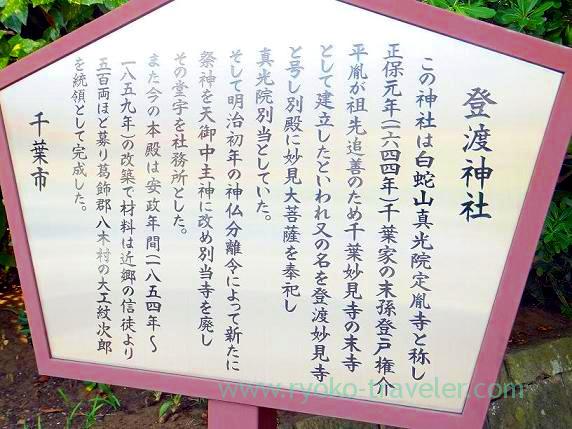 登渡神社
この神社は白蛇山真光院定胤寺と称し
正保元年(一六四四年)千葉家の末孫登戸権介
平胤が祖先追善のため千葉妙見寺の末寺
として建立したといわれ又の名を登渡妙見寺
と号し別殿に妙見大菩薩を奉祀し
真光院別当としていた。
そして明治初年の神仏分離令によって新たに
祭神を天御中主神に改め別当寺を廃し
その堂宇を社務所とした。
また今の本殿は安政年間(一八五四年〜
一八五九年)の改築で材料は近郷の信徒より
五百両ほど募り葛飾郡八木村の大工紋次郎
を統領として完成した。
千葉市
www.ryoko-traveler.com